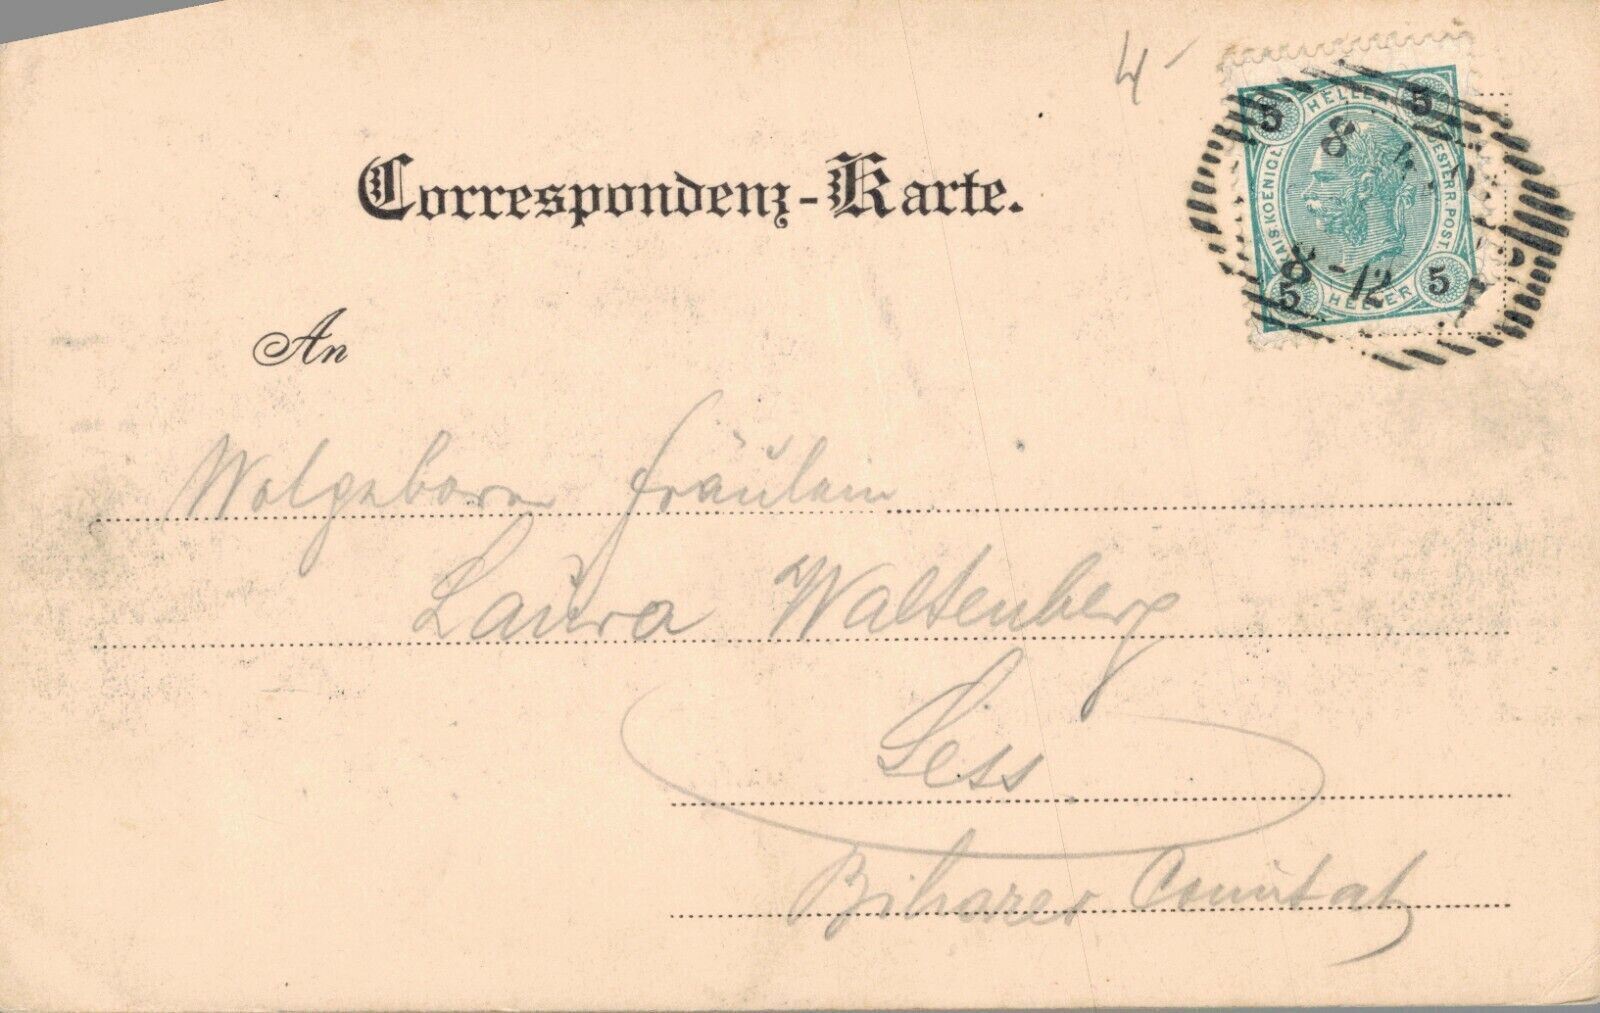 4-
Correspondenz-Karte.
5 HELLER 5
KAIS. KOENIGL. OESTERR. POST.
5 HELLER 5
8
8-12
An
Wolgeboren Fräulein
Laura Waltenberg
Less
Biharer Comitat